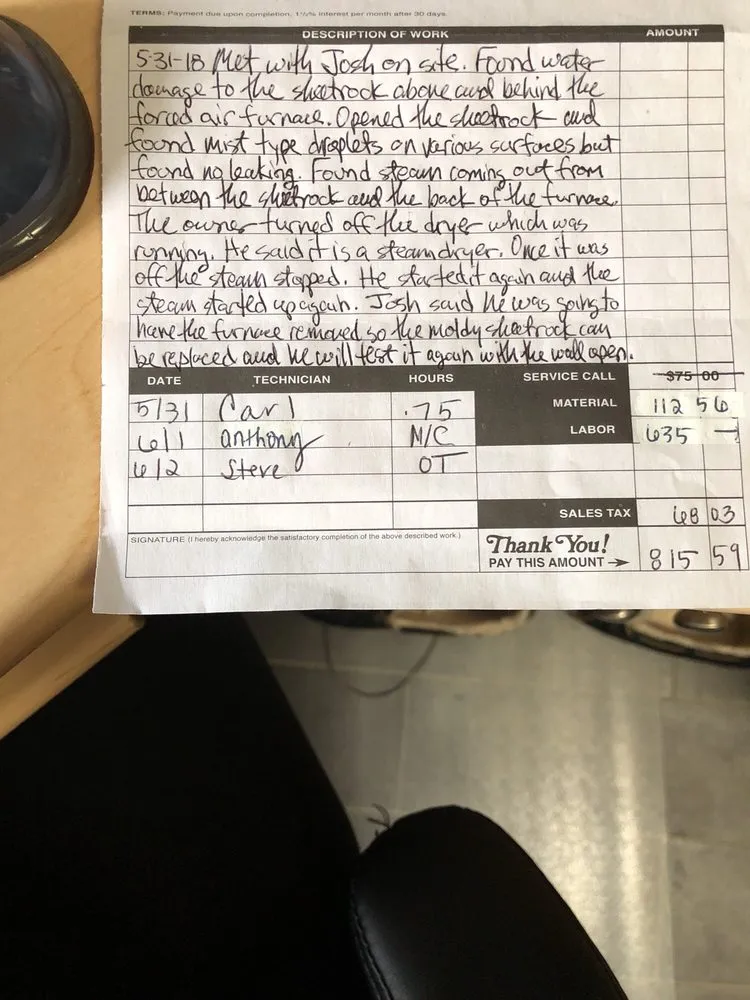 TERMS: Payment due upon completion, 1½% interest per month after 30 days
DESCRIPTION OF WORK AMOUNT
5-31-18 Met with Josh on site. Found water
damage to the sheetrock above and behind the
forced air furnace. Opened the sheetrock and
found mist type droplets on various surfaces but
found no leaking. Found steam coming out from
between the sheetrock and the back of the furnace.
The owner turned off the dryer which was
running. He said it is a steam dryer. Once it was
off the steam stopped. He started it again and the
steam started up again. Josh said he was going to
have the furnace removed so the moldy sheetrock can
be replaced and he will test it again with the wall open.
DATE TECHNICIAN HOURS SERVICE CALL $75 00
5/31 Carl .75 MATERIAL 112 56
6/1 anthony N/C LABOR 635 —
6/2 Steve OT
SALES TAX 68 03
SIGNATURE (I hereby acknowledge the satisfactory completion of the above described work.)
Thank You!
PAY THIS AMOUNT → 815 59